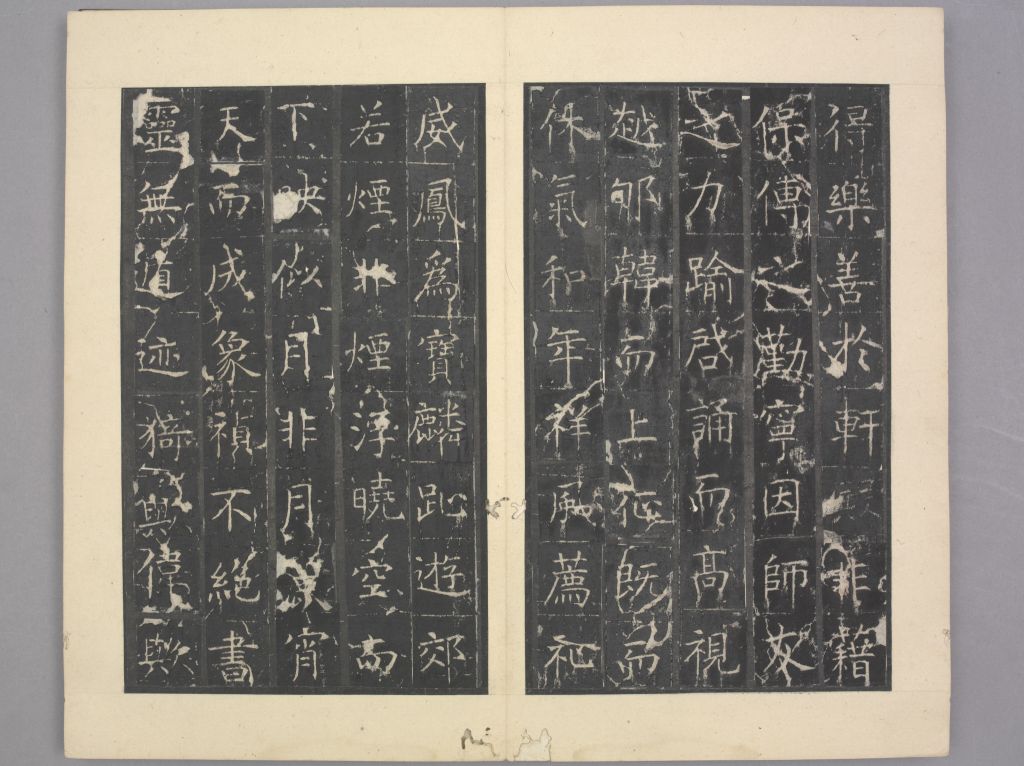 得樂善於軒非藉
保傅之勸寧因師友
之力踰啓誦而高視
越邯韓而上征既而
休氣和年祥風薦祉
威鳳爲寶麟趾遊郊
若煙非煙浮曉空而
下映似月非月麗宵
天而成象禎不絕書
靈無遁迹猗歟偉歟